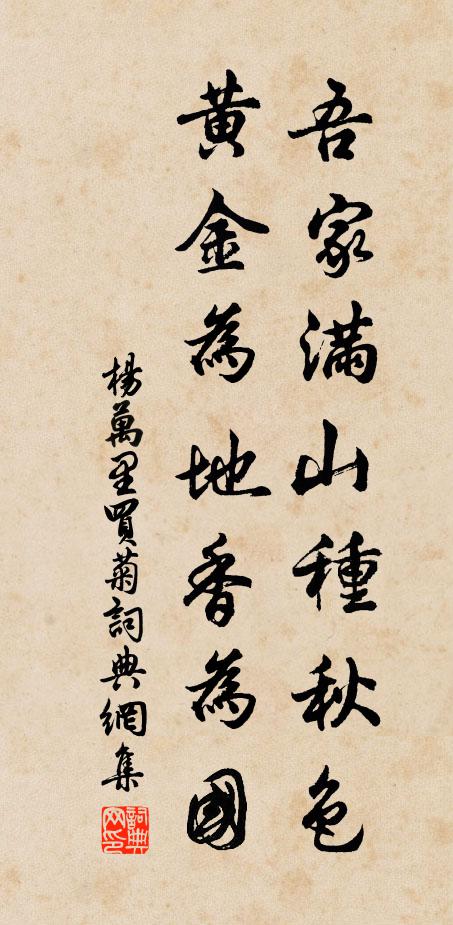 吾家滿山種秋色
黃金為地香為國
楊萬里買菊詞典網集
詞典
网印